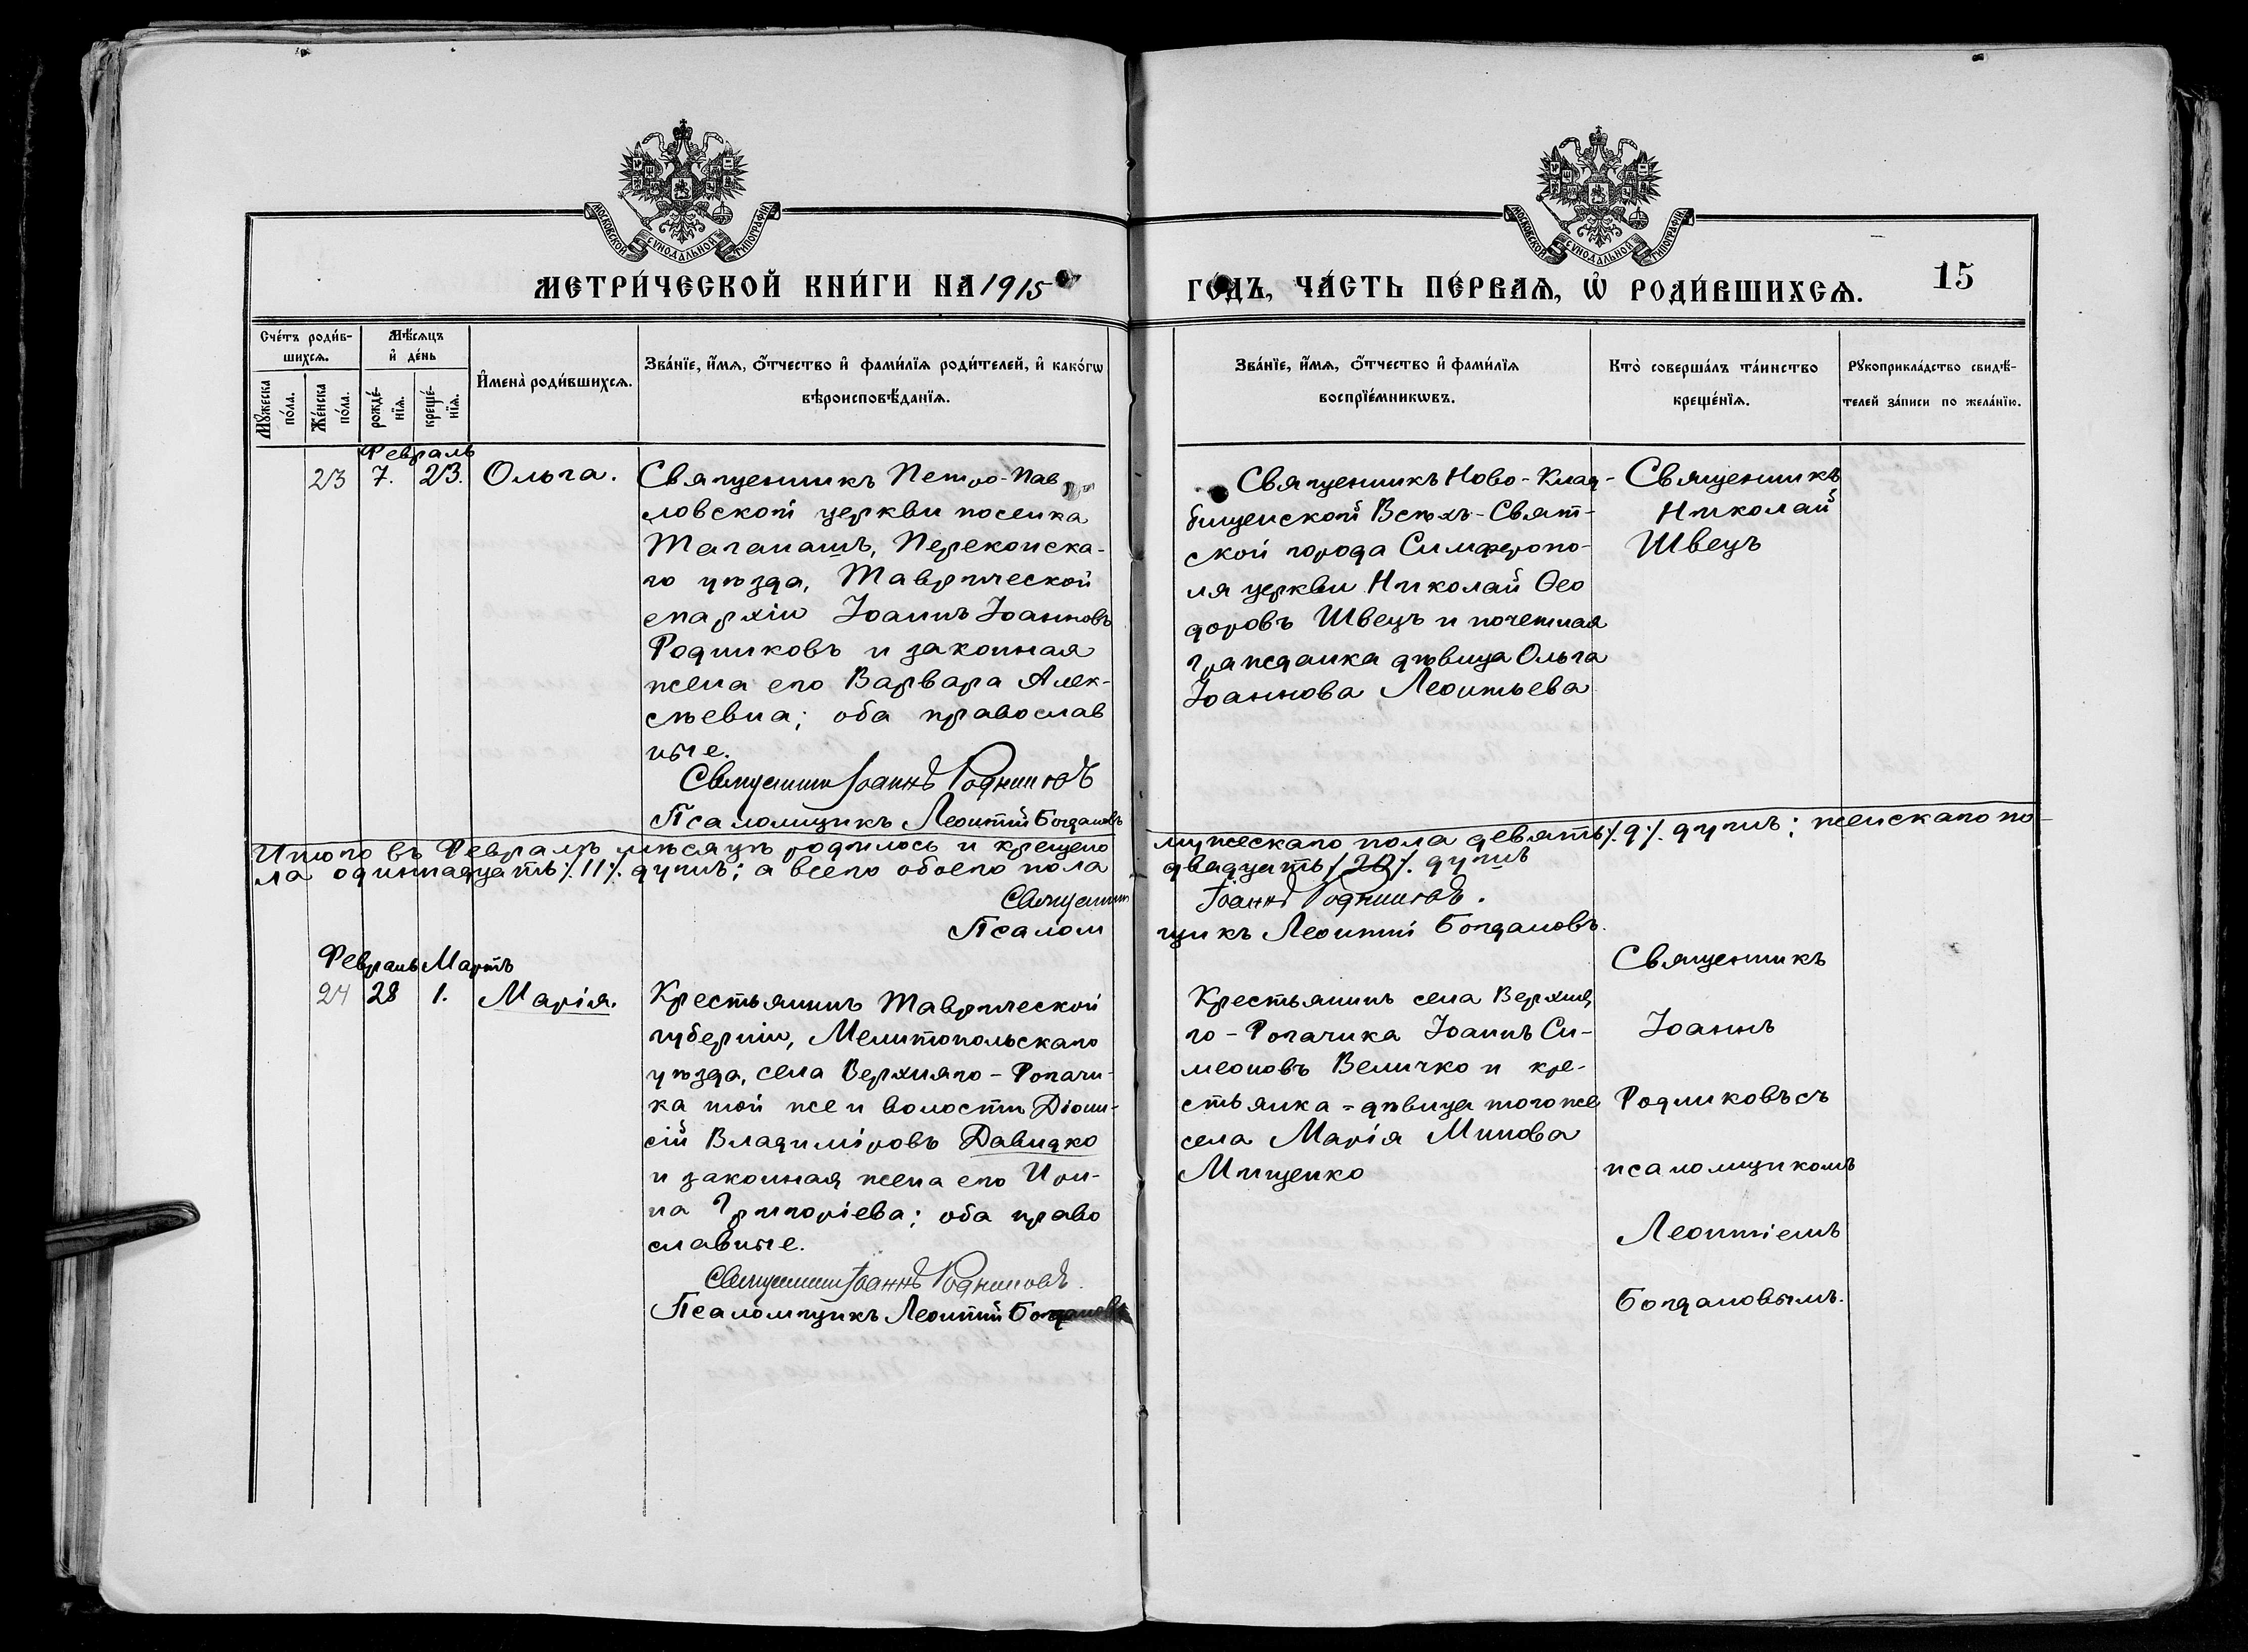 МОСКОВСКОЙ СѴНОДАЛЬНОЙ ТИПОГРАФІИ
МОСКОВСКОЙ СѴНОДАЛЬНОЙ ТИПОГРАФІИ
МЕТРИ́ЧЕСКОЙ КНИ́ГИ НА 1915
ГО́ДЪ, ЧА́СТЬ ПЕ́РВАЯ, Ѡ҆ РОДИ́ВШИХСѦ.
15
Сче́тъ роди́в-
шихсѧ.
Мѣ́сѧцъ
и҆ де́нь
И҆мена̀ роди́вшихсѧ.
Зва́нїе, и҆́мѧ, ѻ҆́тчество и҆ фами́лїѧ роди́телей, и҆ како́гѡ
вѣроисповѣ́данїѧ.
Мꙋ́жеска
по́ла.
Же́нска
по́ла.
рожде́-
нїѧ.
креще́-
нїѧ.
Зва́нїе, и҆́мѧ, ѻ҆́тчество и҆ фами́лїѧ
воспрїе́мникѡвъ.
Кто̀ соверша́лъ та́инство
креще́нїѧ.
Рꙋкоприкла́дство свидѣ́-
телей за́писи по жела́нїю.
Февраль
23 7. 23. Ольга.
Священникъ Петро-Пав
ловской церкви поселка
Таганашъ, Перекопска-
го уѣзда, Таврической
епархіи Іоаннъ Іоанновъ
Родниковъ и законная
жена его Варвара Алек-
сѣевна; оба православ
ные.
Священникъ Іоаннъ Родниковъ
Псаломщикъ Леонтій Богдановъ
Священникъ Ново-Клад-
бищенской Всѣхъ-Свят-
ской города Симферопо-
ля церкви Николай Ѳео
доровъ Швецъ и почетная
гражданка дѣвица Ольга
Іоаннова Леонтьева
Священникъ
Николай
Швецъ
Итого въ Февралѣ мѣсяцѣ родилось и крещено мужескаго пола девять ⁒9⁒. душъ; женскаго по-
ла одиннадцать ⁒11⁒. душъ; а всего обоего пола двадцать ⁒20⁒. душъ
Священникъ Іоаннъ Родниковъ.
Псаломщикъ Леонтій Богдановъ.
Февраль Мартъ
24 28 1. Марія.
Крестьянинъ Таврической
губерніи, Мелитопольскаго
уѣзда, села Верхняго-Рогачи-
ка той же и волости Діони-
сій Владиміровъ Давидко
и законная жена его Ири-
на Григоріева; оба право
славные.
Священникъ Іоаннъ Родниковъ.
Псаломщикъ Леонтій Богдановъ
Крестьянинъ села Верхня
го-Рогачика Іоаннъ Си-
меоновъ Величко и кре-
стьянка-дѣвица того же
села Марія Минова
Мищенко
Священникъ
Іоаннъ
Родниковъ съ
псаломщикомъ
Леонтіемъ
Богдановымъ.